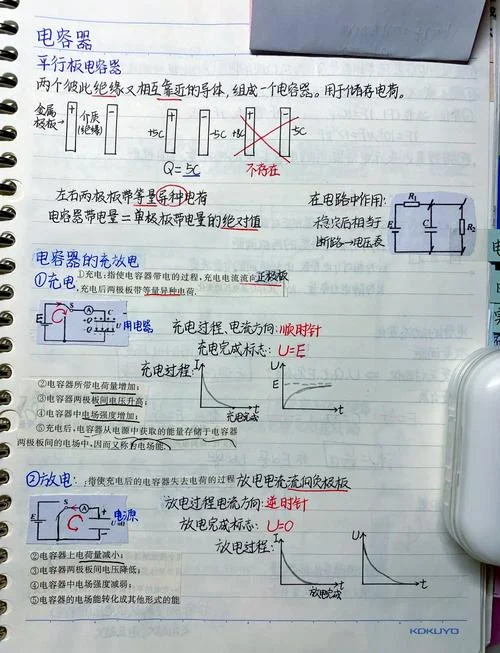 电容器
平行板电容器
两个彼此绝缘又相互靠近的导体，组成一个电容器。用于储存电荷。
金属极板→ + 介质(绝缘) -
+5C + - -5C
+8C + - -5C
Q=5C 不存在
左右两极板带等量异种电荷
电容器带电量=单极板带电量的绝对值
在电路中作用:
稳定后相当
断路→电压表
R₁
E C R₂
电容器的充放电
①充电:
①充电:指使电容器带电的过程,充电电流流向正极板
充电后两极板带等量异种电荷.
E S A C +Q -Q U 用电器
充电过程,电流方向:顺时针
充电完成标志: U=E
充电过程:
I t 充电完成
U E t
②电容器所带电荷量增加;
③电容器两极板间电压升高;
④电容器中电场强度增加;
⑤充电后,电容器从电源中获取的能量存储于电容器
两极板间的电场中,因而又称为电场能.
②放电:
:指使充电后的电容器失去电荷的过程
放电电流流向负极板
E S A + - U 电源
放电过程电流方向:逆时针
放电完成标志: U=0
放电过程:
I t 放电完成
U t
②电容器上电荷量减小;
③电容器两极板间电压降低;
④电容器中电场强度减弱;
⑤电容器的电场能转化成其他形式的能
KOKUYO